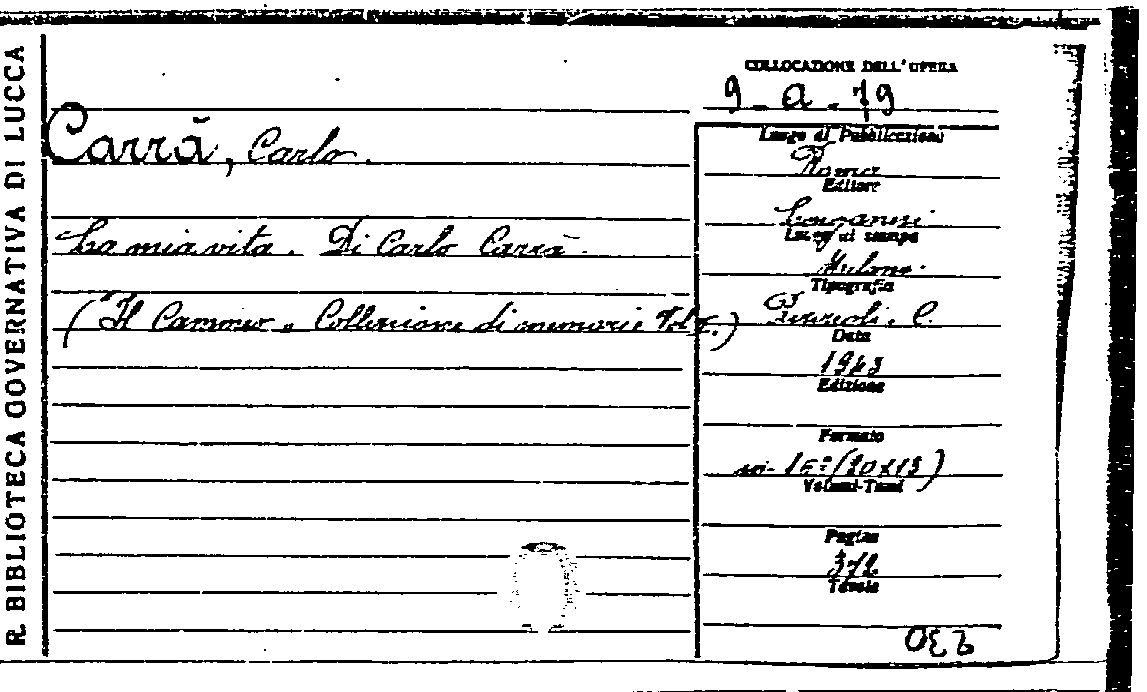 R. BIBLIOTECA GOVERNATIVA DI LUCCA
COLLOCAZIONE DELL'OPERA
9 - a . 79
Carrà, Carlo.
La mia vita. Di Carlo Carrà.
("Il Cammeo" Collezione di memorie Vol. I.)
Luogo di Pubblicazione
Roma
Editore
Longanesi
Luogo di stampa
Milano.
Tipografia
Rizzoli. C.
Data
1943
Edizione
Formato
in-16º (20x13)
Volumi-Tomi
Pagine
372
Tavole